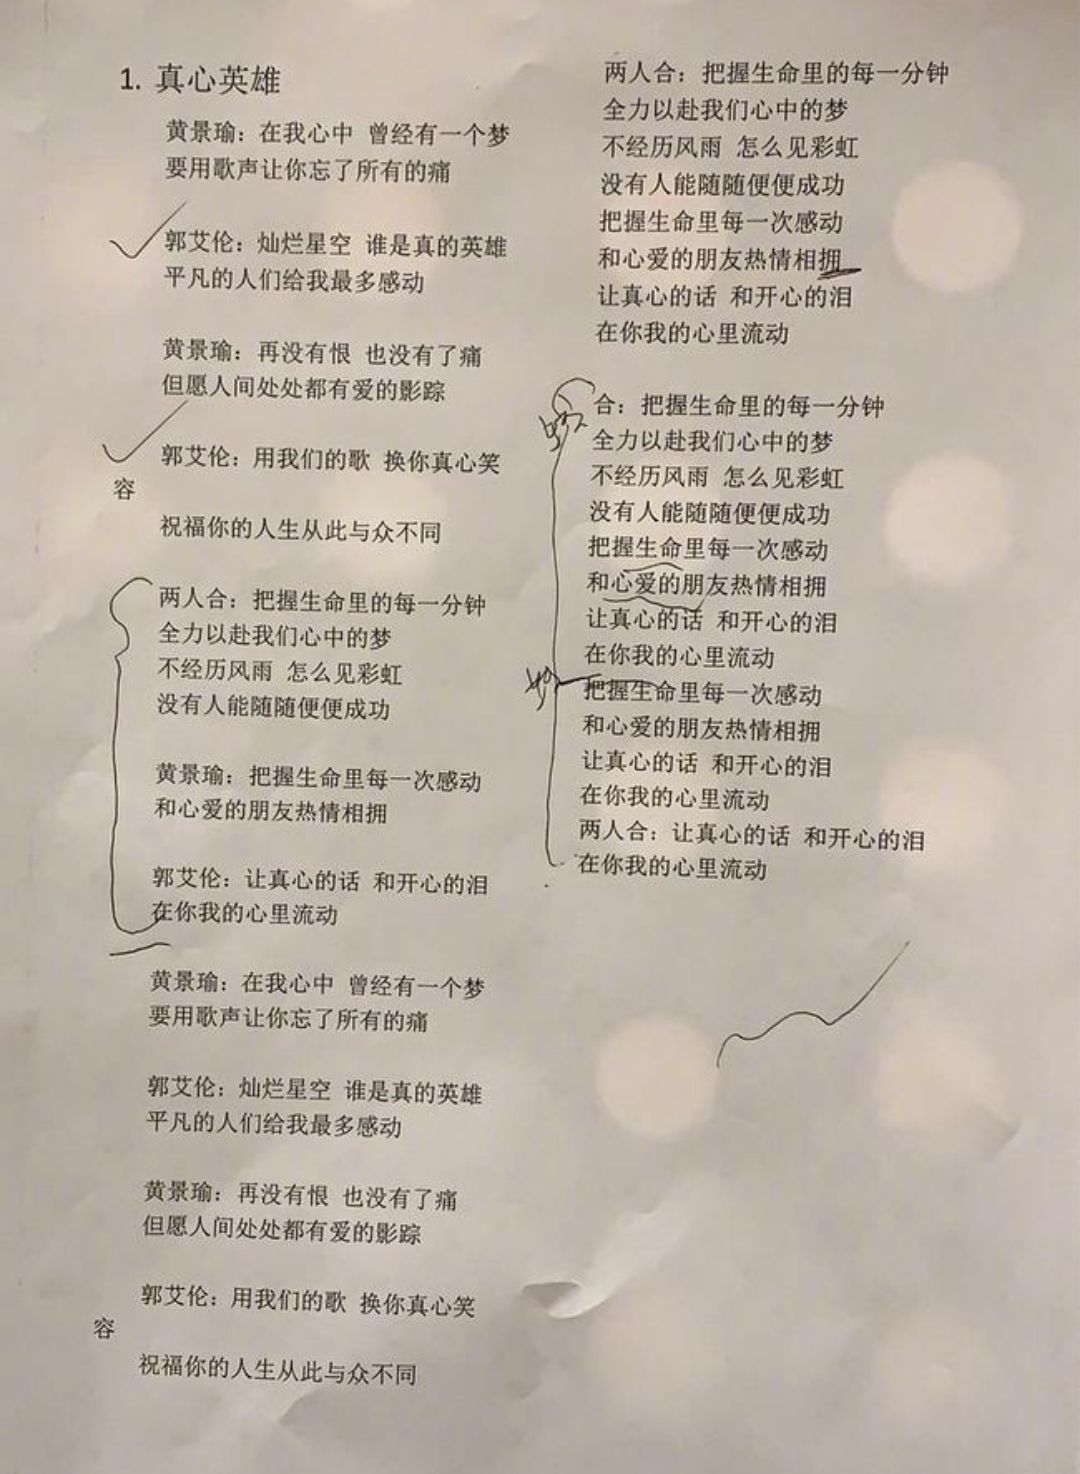 1. 真心英雄
黄景瑜：在我心中 曾经有一个梦
要用歌声让你忘了所有的痛
郭艾伦：灿烂星空 谁是真的英雄
平凡的人们给我最多感动
黄景瑜：再没有恨 也没有了痛
但愿人间处处都有爱的影踪
郭艾伦：用我们的歌 换你真心笑
容
祝福你的人生从此与众不同
两人合：把握生命里的每一分钟
全力以赴我们心中的梦
不经历风雨 怎么见彩虹
没有人能随随便便成功
黄景瑜：把握生命里每一次感动
和心爱的朋友热情相拥
郭艾伦：让真心的话 和开心的泪
在你我的心里流动
黄景瑜：在我心中 曾经有一个梦
要用歌声让你忘了所有的痛
郭艾伦：灿烂星空 谁是真的英雄
平凡的人们给我最多感动
黄景瑜：再没有恨 也没有了痛
但愿人间处处都有爱的影踪
郭艾伦：用我们的歌 换你真心笑
容
祝福你的人生从此与众不同
两人合：把握生命里的每一分钟
全力以赴我们心中的梦
不经历风雨 怎么见彩虹
没有人能随随便便成功
把握生命里每一次感动
和心爱的朋友热情相拥
让真心的话 和开心的泪
在你我的心里流动
合：把握生命里的每一分钟
全力以赴我们心中的梦
不经历风雨 怎么见彩虹
没有人能随随便便成功
把握生命里每一次感动
和心爱的朋友热情相拥
让真心的话 和开心的泪
在你我的心里流动
把握生命里每一次感动
和心爱的朋友热情相拥
让真心的话 和开心的泪
在你我的心里流动
两人合：让真心的话 和开心的泪
在你我的心里流动